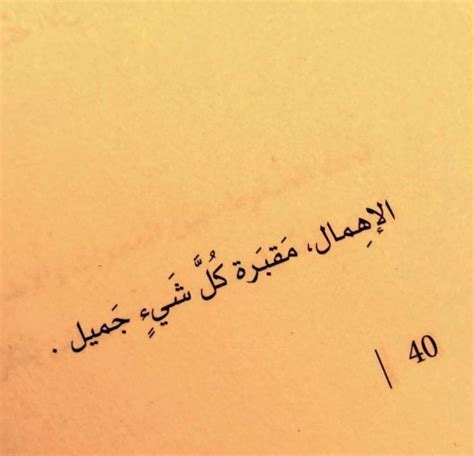 الإهِمال، مَقبَرة كُلَّ شَيءٍ جَميل .
40 |